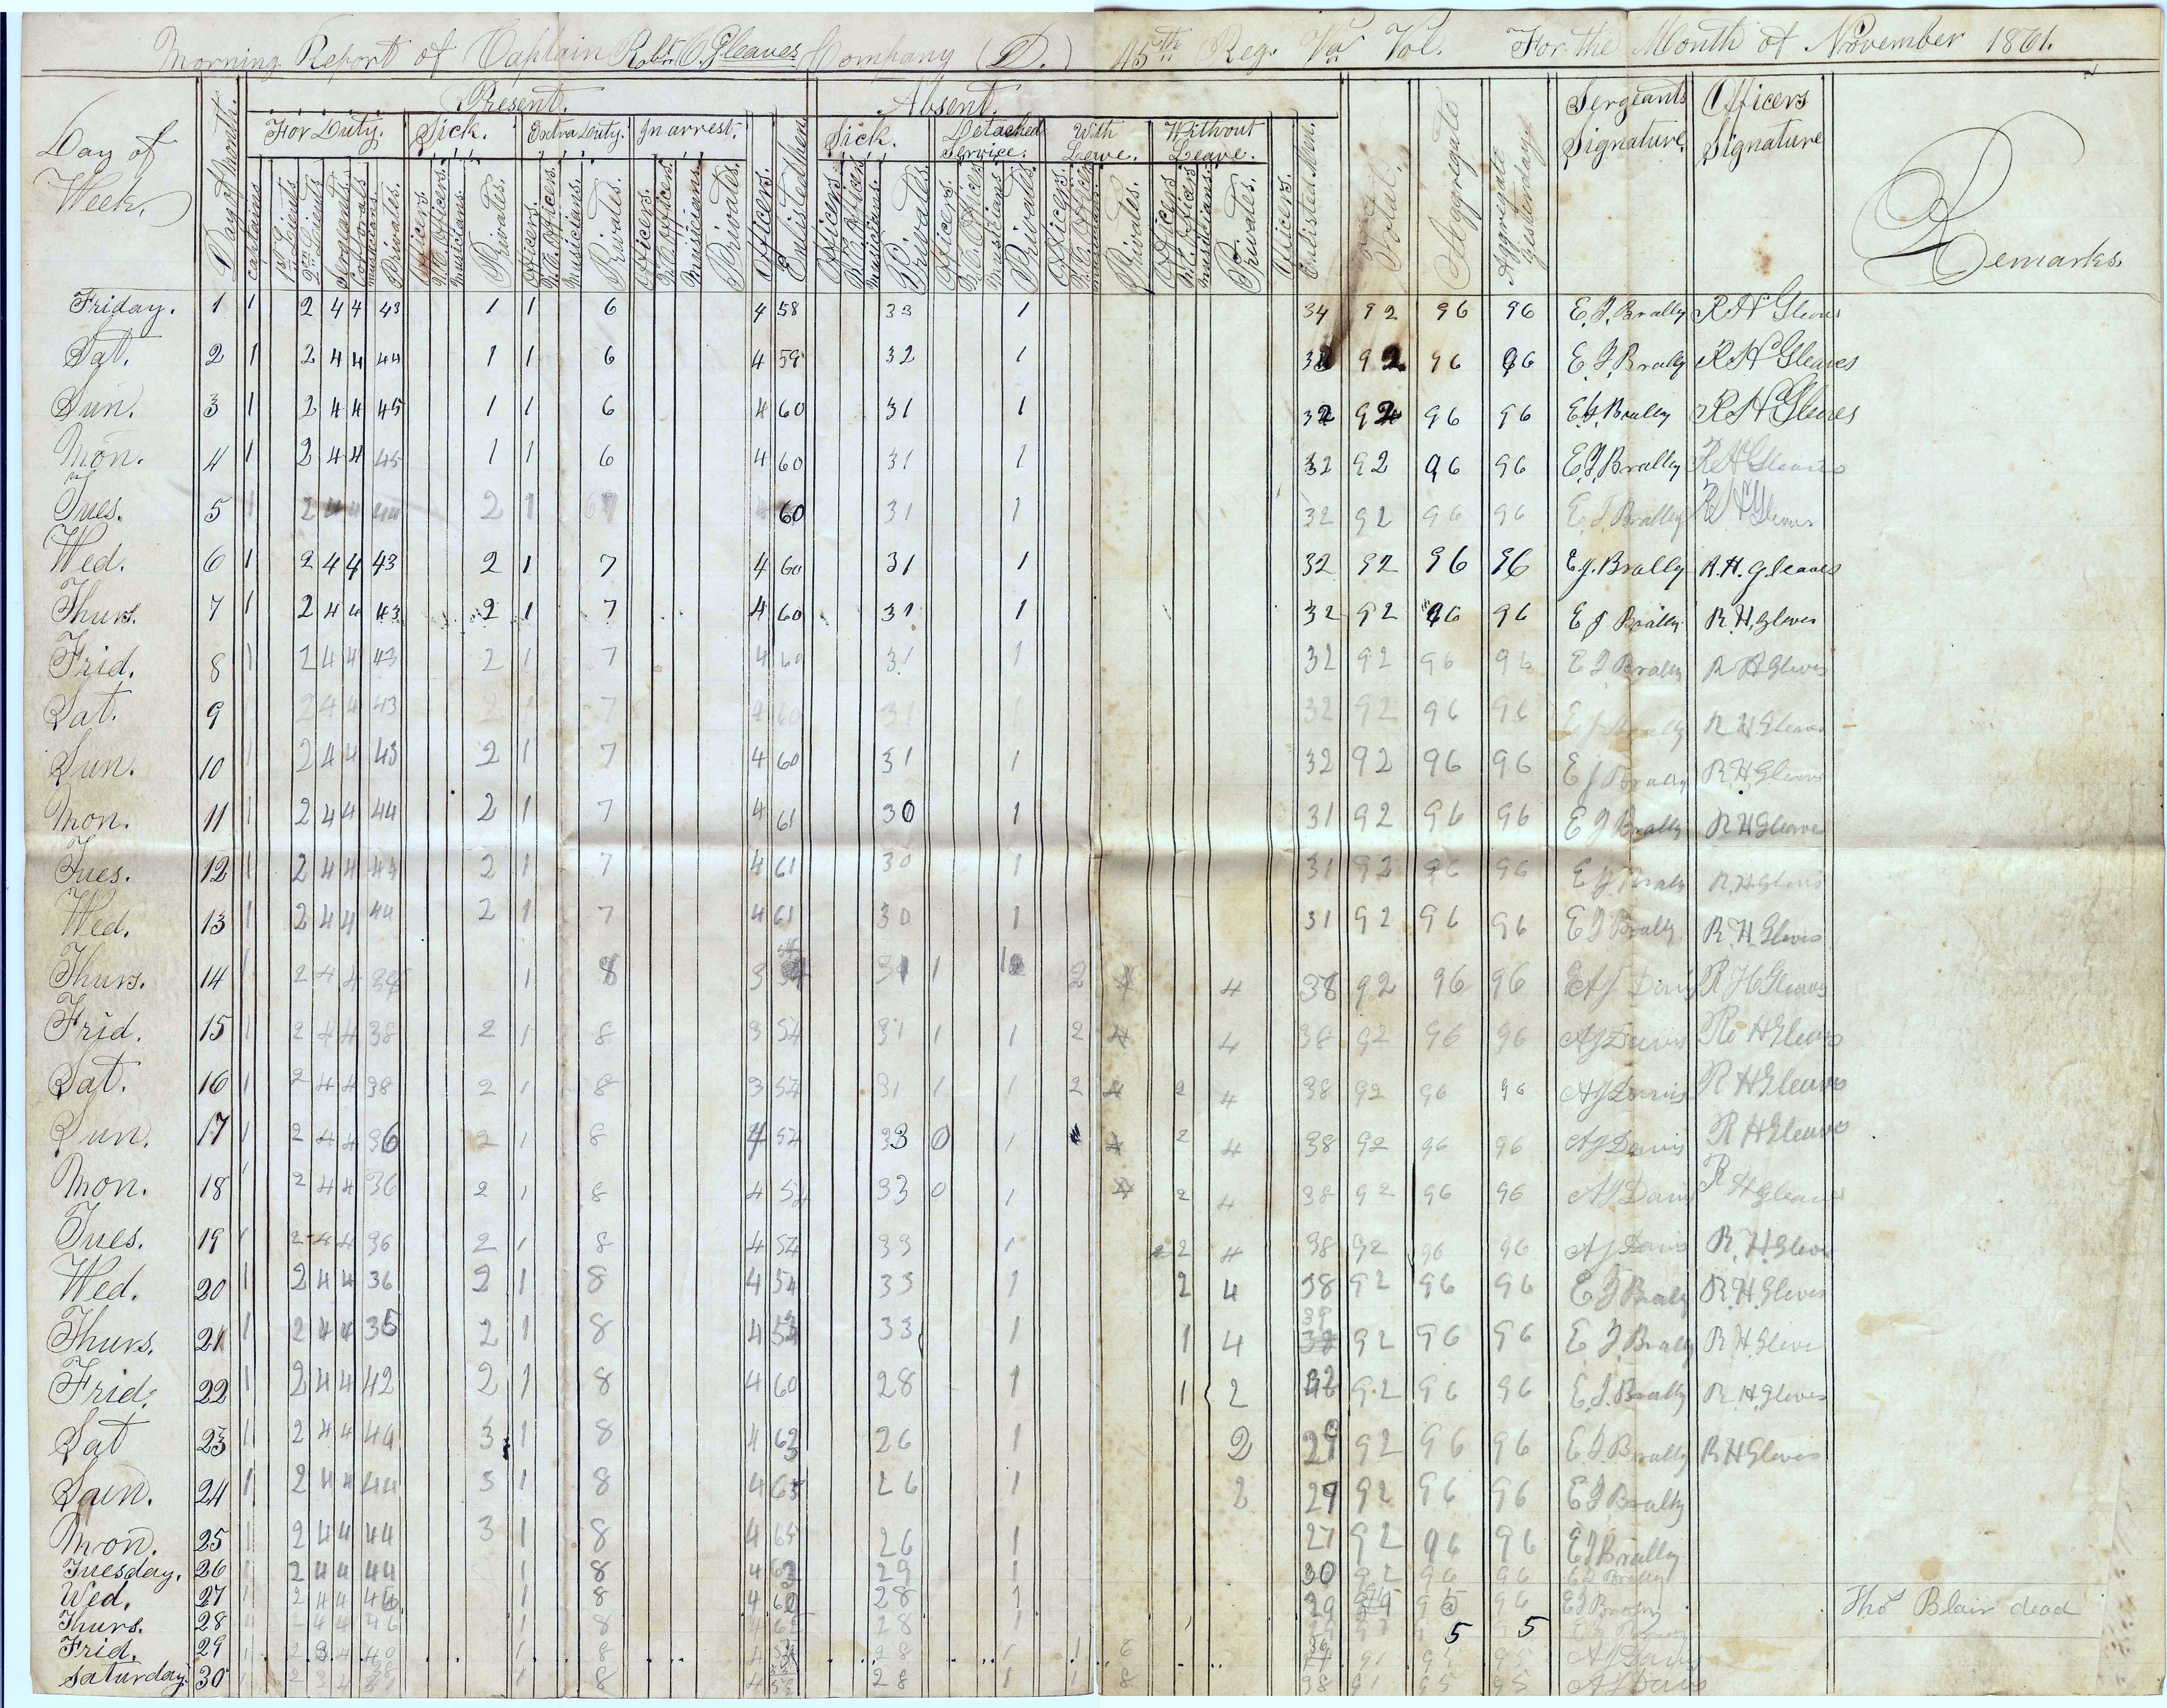 Morning Report of Captain Robt. H. Gleaves Company (D.) 45th Reg. Va Vol. For the Month of November 1861.
Day of Week.
Day of Month.
Present.
For Duty. Sick. Extra Duty. In arrest.
Captains. 1st Lieuts. 2nd Lieuts. Sergeants. Corporals. Musicians. Privates.
Officers. N.C. Officers. Musicians. Privates.
Officers. N.C. Officers. Musicians. Privates.
Officers. N.C. Officers. Musicians. Privates.
Officers. Enlisted Men.
Absent.
Sick. Detached Service. With Leave. Without Leave.
Officers. N.C. Officers. Musicians. Privates.
Officers. N.C. Officers. Musicians. Privates.
Officers. N.C. Officers. Musicians. Privates.
Officers. N.C. Officers. Musicians. Privates.
Officers. Enlisted Men.
Total.
Aggregate
Aggregate Yesterday
Sergeants Signature.
Officers Signature
Remarks.
Friday. 1 1 2 4 4 43 1 1 6 4 58 33 1 34 92 96 96 E. J. Brally R H Gleaves
Sat. 2 1 2 4 4 44 1 1 6 4 59 32 1 33 92 96 96 E. J. Brally R H Gleaves
Sun. 3 1 2 4 4 45 1 1 6 4 60 31 1 32 92 96 96 E. J. Brally R H Gleaves
Mon. 4 1 2 4 4 45 1 1 6 4 60 31 1 32 92 96 96 E J Brally R H Gleaves
Tues. 5 1 2 4 4 44 2 1 60 31 1 32 92 96 96 E J Brally R H Gleaves
Wed. 6 1 2 4 4 43 2 1 7 4 60 31 1 32 92 96 96 E. J. Brally R. H. Gleaves
Thurs. 7 1 2 4 4 43 2 1 7 4 60 31 1 32 92 96 96 E J Brally R. H. Gleves
Frid. 8 1 2 4 4 43 2 1 7 4 60 31 1 32 92 96 96 E J Brally R H Gleves
Sat. 9 2 4 4 43 2 7 4 60 3 32 92 96 96 E J Brally R H Gleaves
Sun. 10 1 2 4 4 43 2 1 7 4 60 31 1 32 92 96 96 E J Brally R. H. Gleave
Mon. 11 1 2 4 4 44 2 1 7 4 61 30 1 31 92 96 96 E J Brally R H Gleave
Tues. 12 1 2 4 4 44 2 1 7 4 61 30 1 31 92 96 96 E J Brally R. H. Gleves
Wed. 13 1 2 4 4 44 2 1 7 4 61 30 1 31 92 96 96 E J Brally R. H. Gleves
Thurs. 14 1 2 4 4 1 8 3 31 1 2 4 38 92 96 96 A J Davis R H Gleaves
Frid. 15 1 2 4 4 38 2 1 8 3 54 31 1 1 2 4 4 38 92 96 96 A J Davis Ro H Gleaves
Sat. 16 1 2 4 4 38 2 1 8 3 54 31 1 1 2 4 2 4 38 92 96 96 A J Davis R H Gleaves
Sun. 17 1 2 4 4 36 2 1 8 4 54 33 0 1 4 2 4 38 92 96 96 A J Davis R H Gleaves
Mon. 18 1 2 4 4 36 2 1 8 4 54 33 0 1 4 2 4 38 92 96 96 A J Davis R H Gleaves
Tues. 19 1 2 4 4 36 2 1 8 4 54 33 1 2 4 38 92 96 96 A J Davis R. H. Gleve
Wed. 20 1 2 4 4 36 2 1 8 4 54 33 1 2 4 38 92 96 96 E J Brally R. H. Gleves
Thurs. 21 1 2 4 4 35 2 1 8 4 53 33 1 1 4 39 38 92 96 96 E J. Brally R H. Gleve
Frid. 22 1 2 4 4 42 2 1 8 4 60 28 1 1 2 32 92 96 96 E. J. Brally R. H. Gleves
Sat 23 1 2 4 4 44 3 1 8 4 63 26 1 2 29 92 96 96 E. J. Brally R H Gleves
Sun. 24 1 2 4 4 44 3 1 8 4 63 26 1 2 29 92 96 96 E J Brally
Mon. 25 1 2 4 4 44 3 1 8 4 65 26 1 27 92 96 96 E J Brally
Tuesday. 26 1 2 4 4 44 1 8 4 62 29 1 30 92 96 96 E J Brally
Wed. 27 1 2 4 4 1 8 4 28 1 29 95 96 E J Brally Thos Blair dead
Thurs. 28 1 2 4 4 46 1 8 4 62 28 1 5 5
Frid. 29 1 2 3 4 40 1 8 4 28 1 1 6 91 95 95 A J Davis
Saturday. 30 1 2 3 4 1 8 4 28 1 1 8 38 91 95 95 A J Davis